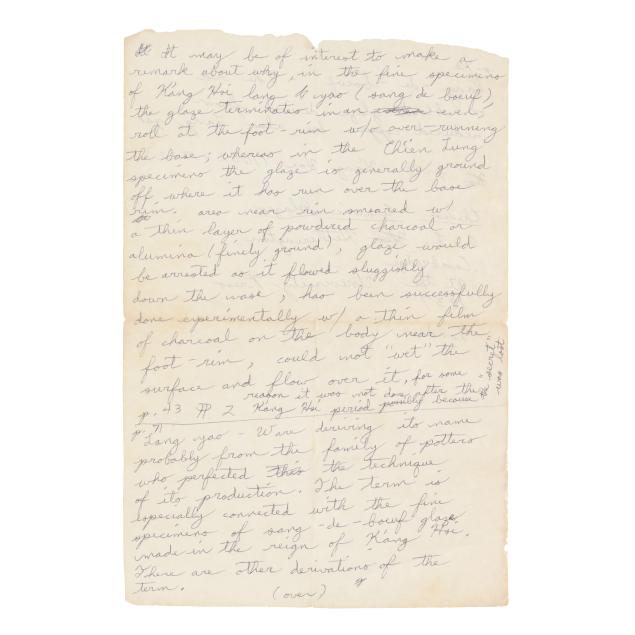 It may be of interest to make a
remark about why, in the fine specimens
of K'ang Hsi lang yao (sang de boeuf)
the glaze terminates in an even
roll at the foot-rim w/o over-running
the base; whereas in the Chien Lung
specimens the glaze is generally ground
off where it has run over the base
rim. area near rim smeared w/
a thin layer of powdered charcoal or
alumina (finely ground), glaze would
be arrested as it flowed sluggishly
down the vase; has been successfully
done experimentally w/ a thin film
of charcoal on the body near the
foot-rim, could not "wet" the
surface and flow over it, for some
reason it was not done after the
K'ang Hsi period possibly because
the "secret"
was lost
p. 43 ¶ 2
p. 71
Lang yao - Ware deriving its name
probably from the family of potters
who perfected this the technique
of its production. The term is
especially connected with the fine
specimens of sang-de-boeuf glaze
made in the reign of K'ang Hsi.
There are other derivations of the
term.
(over)